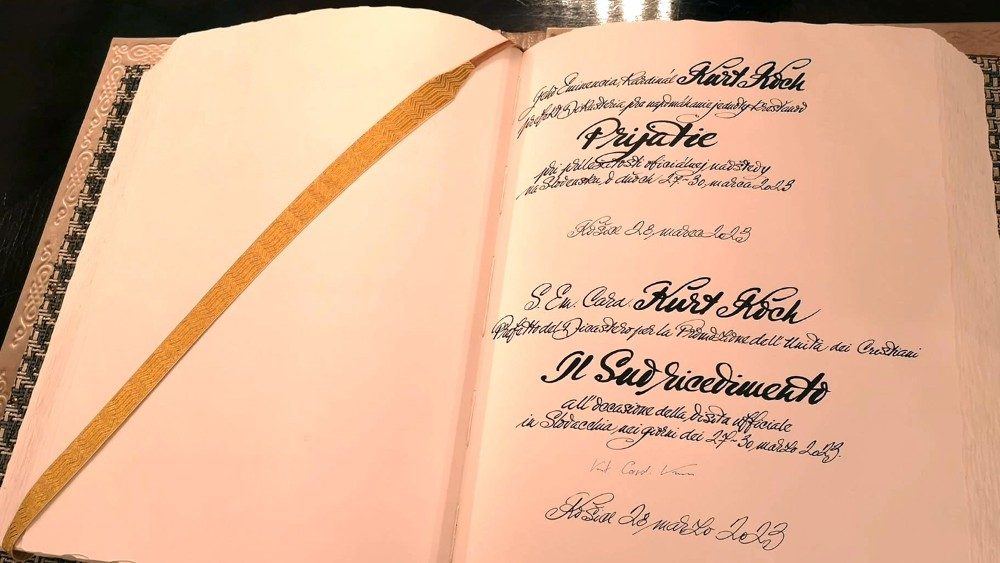 Jeho Eminencia, Kardinál Kurt Koch
prefekt Dikastéria pre napomáhanie jednoty kresťanov
Prijatie
pri príležitosti oficiálnej návštevy
na Slovensku, v dňoch 27-30, marca 2023
Košice 28, marca 2023
S. Em. Card. Kurt Koch
Prefetto del Dicastero per la Promozione dell'Unità dei Cristiani
Il Suo ricedimento
all'occasione della visita ufficiale
in Slovacchia nei giorni dei 27-30, marzo 2023.
Card. Koch
Košice 28, marzo 2023